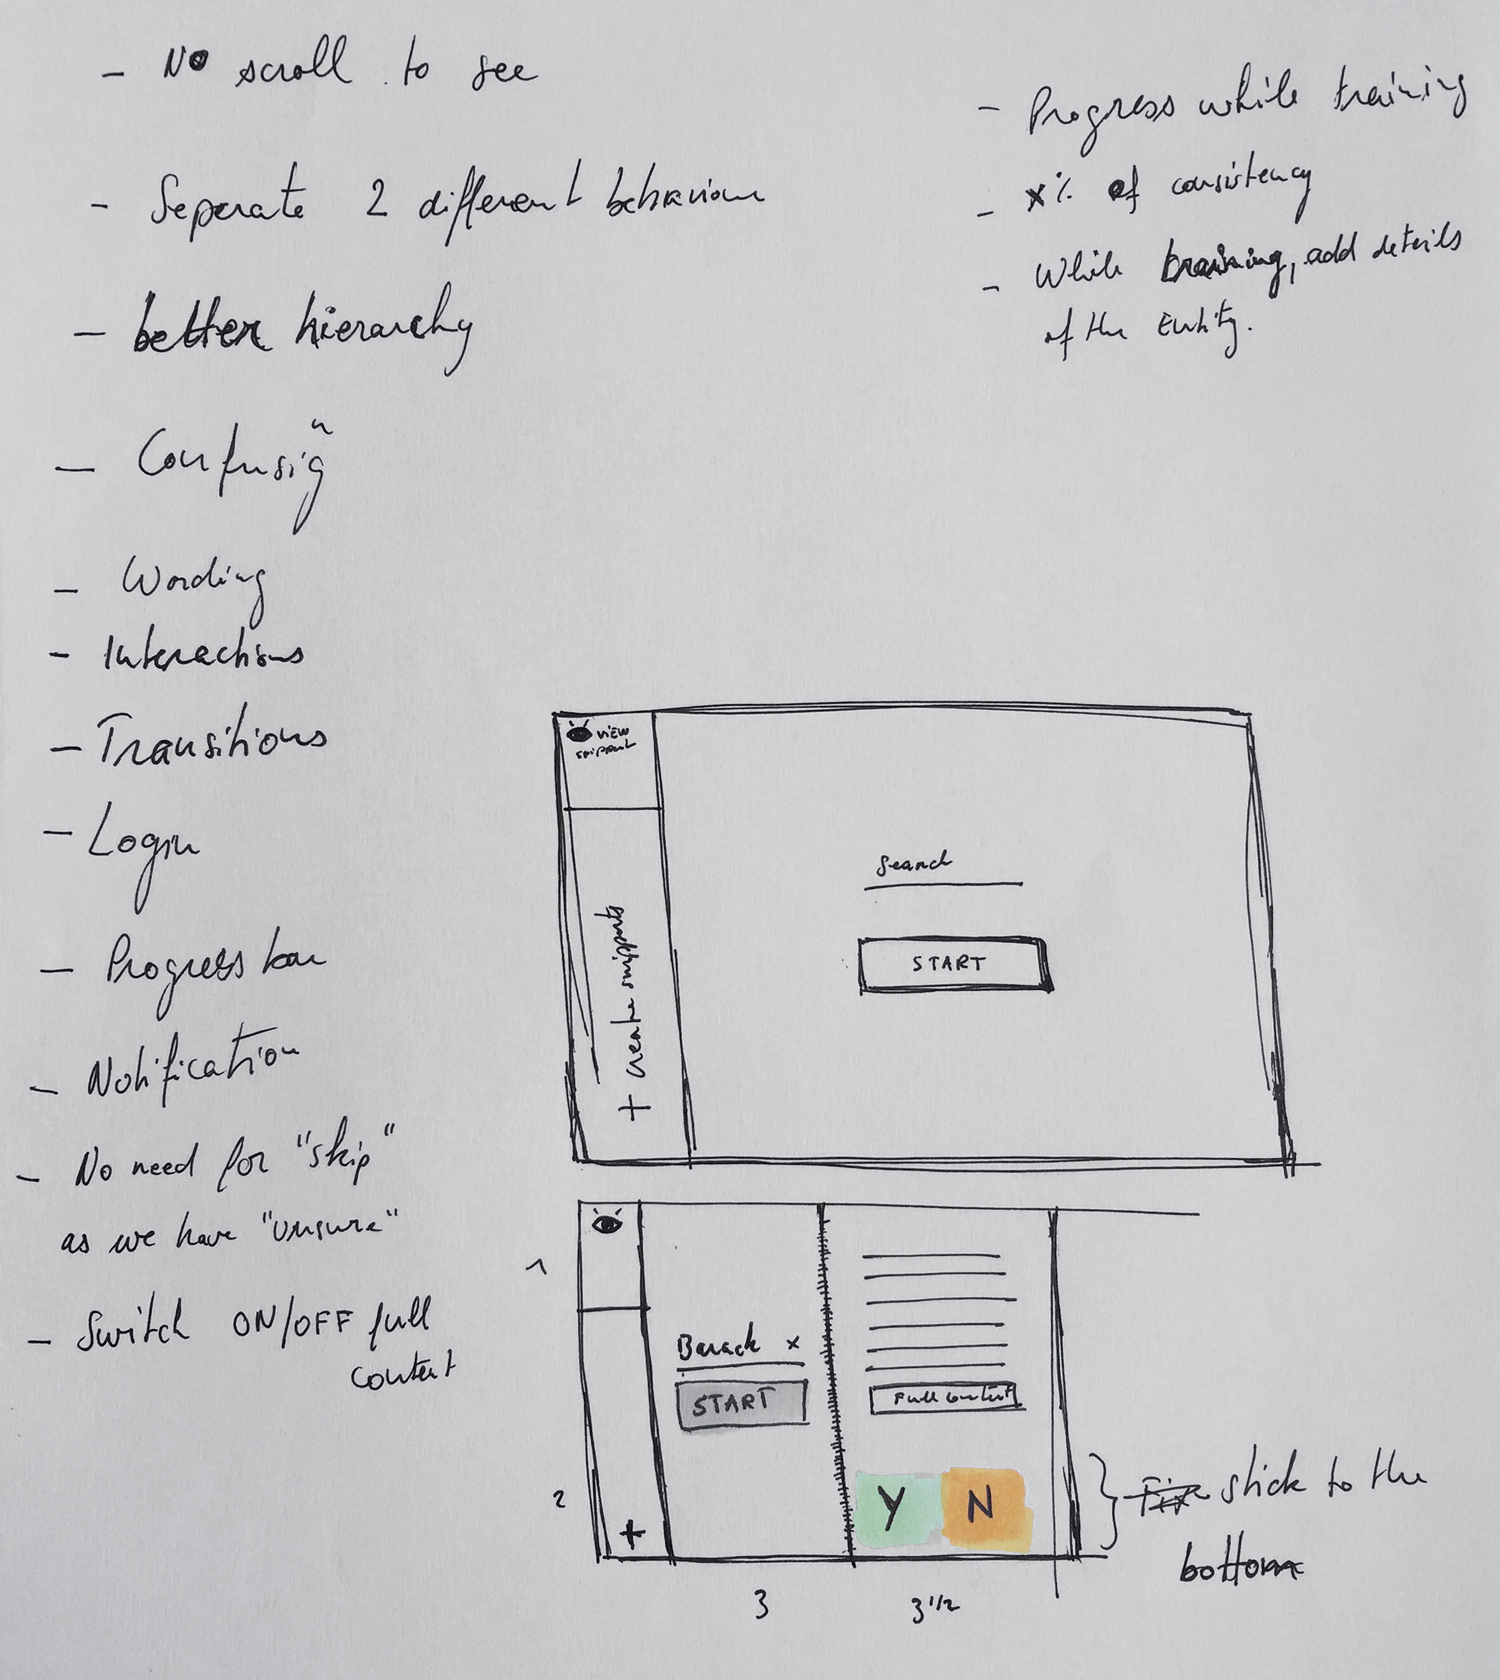 - No scroll to see
- Seperate 2 different behaviour
- better hierarchy
- Confusig
n
- Wording
- Interactions
- Transitions
- Login
- Progress bar
- Notification
- No need for "skip"
as we have "unsure"
- Switch ON/OFF full
content
- Progress while training
- x% of consistency
- While training, add details
of the Entity.
VIEW
snippet
+ create snippets
Search
START
1
2
+
Barack x
START
Full content
Y N
} Fix stick to the
bottom
3
3 1/2